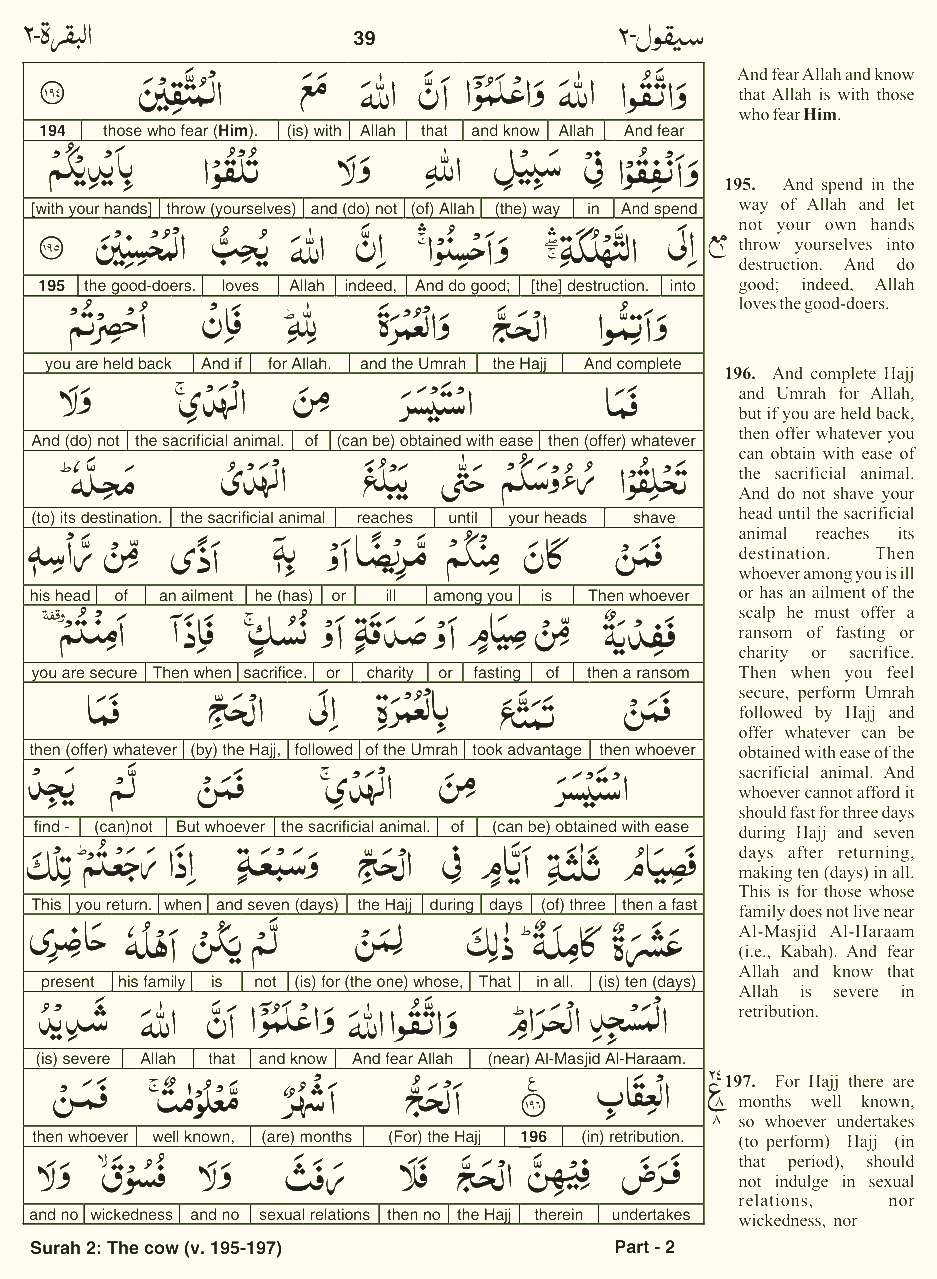 البقرة-٢
39
سيقول-٢
وَاتَّقُوا اللهَ وَاعْلَمُوْٓا اَنَّ اللهَ مَعَ الْمُتَّقِيْنَ ﴿١٩٤﴾
And fear | Allah | and know | that | Allah | (is) with | those who fear (Him). | 194
وَاَنْفِقُوْا فِيْ سَبِيْلِ اللهِ وَلَا تُلْقُوْا بِاَيْدِيْكُمْ
And spend | in | (the) way | (of) Allah | and (do) not | throw (yourselves) | [with your hands]
اِلَى التَّهْلُكَةِ ۛۚ وَاَحْسِنُوْا ۛۚ اِنَّ اللهَ يُحِبُّ الْمُحْسِنِيْنَ ﴿١٩٥﴾
into | [the] destruction. | And do good; | indeed, | Allah | loves | the good-doers. | 195
وَاَتِمُّوا الْحَجَّ وَالْعُمْرَةَ لِلّٰهِ ؕ فَاِنْ اُحْصِرْتُمْ
And complete | the Hajj | and the Umrah | for Allah. | And if | you are held back
فَمَا اسْتَيْسَرَ مِنَ الْهَدْيِ ۚ وَلَا
then (offer) whatever | (can be) obtained with ease | of | the sacrificial animal. | And (do) not
تَحْلِقُوْا رُءُوْسَكُمْ حَتّٰى يَبْلُغَ الْهَدْيُ مَحِلَّهٗ ؕ
shave | your heads | until | reaches | the sacrificial animal | (to) its destination.
فَمَنْ كَانَ مِنْكُمْ مَّرِيْضًا اَوْ بِهٖٓ اَذًى مِّنْ رَّاْسِهٖ
Then whoever | is | among you | ill | or | he (has) | an ailment | of | his head
فَفِدْيَةٌ مِّنْ صِيَامٍ اَوْ صَدَقَةٍ اَوْ نُسُكٍ ۚ فَاِذَآ اَمِنْتُمْ وقفة
then a ransom | of | fasting | or | charity | or | sacrifice. | Then when | you are secure
فَمَنْ تَمَتَّعَ بِالْعُمْرَةِ اِلَى الْحَجِّ فَمَا
then whoever | took advantage | of the Umrah | followed | (by) the Hajj, | then (offer) whatever
اسْتَيْسَرَ مِنَ الْهَدْيِ ۚ فَمَنْ لَّمْ يَجِدْ
(can be) obtained with ease | of | the sacrificial animal. | But whoever | (can)not | find -
فَصِيَامُ ثَلٰثَةِ اَيَّامٍ فِي الْحَجِّ وَسَبْعَةٍ اِذَا رَجَعْتُمْ ؕ تِلْكَ
then a fast | (of) three | days | during | the Hajj | and seven (days) | when | you return. | This
عَشَرَةٌ كَامِلَةٌ ؕ ذٰلِكَ لِمَنْ لَّمْ يَكُنْ اَهْلُهٗ حَاضِرِى
(is) ten (days) | in all. | That | (is) for (the one) whose, | not | is | his family | present
الْمَسْجِدِ الْحَرَامِ ؕ وَاتَّقُوا اللهَ وَاعْلَمُوْٓا اَنَّ اللهَ شَدِيْدُ
(near) Al-Masjid Al-Haraam. | And fear Allah | and know | that | Allah | (is) severe
الْعِقَابِ ﴿١٩٦﴾ ع اَلْحَجُّ اَشْهُرٌ مَّعْلُوْمٰتٌ ۚ فَمَنْ
(in) retribution. | 196 | (For) the Hajj | (are) months | well known, | then whoever
فَرَضَ فِيْهِنَّ الْحَجَّ فَلَا رَفَثَ وَلَا فُسُوْقَ ۙ وَلَا
undertakes | therein | the Hajj | then no | sexual relations | and no | wickedness | and no
And fear Allah and know
that Allah is with those
who fear Him.
195. And spend in the
way of Allah and let
not your own hands
throw yourselves into
destruction. And do
good; indeed, Allah
loves the good-doers.
196. And complete Hajj
and Umrah for Allah,
but if you are held back,
then offer whatever you
can obtain with ease of
the sacrificial animal.
And do not shave your
head until the sacrificial
animal reaches its
destination. Then
whoever among you is ill
or has an ailment of the
scalp he must offer a
ransom of fasting or
charity or sacrifice.
Then when you feel
secure, perform Umrah
followed by Hajj and
offer whatever can be
obtained with ease of the
sacrificial animal. And
whoever cannot afford it
should fast for three days
during Hajj and seven
days after returning,
making ten (days) in all.
This is for those whose
family does not live near
Al-Masjid Al-Haraam
(i.e., Kabah). And fear
Allah and know that
Allah is severe in
retribution.
٢٤ ع ٨ ٨
197. For Hajj there are
months well known,
so whoever undertakes
(to perform) Hajj (in
that period), should
not indulge in sexual
relations, nor
wickedness, nor
Surah 2: The cow (v. 195-197)
Part - 2